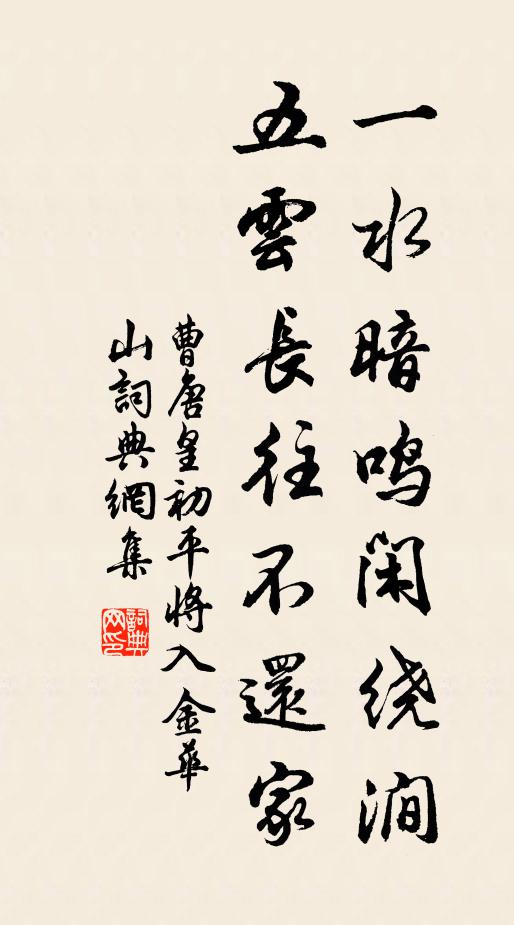 一水暗鸣闲绕涧
五雲長往不還家
曹唐皇初平将入金華
山詞典網集
詞典网印